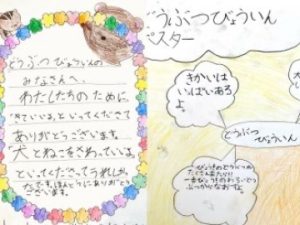 どうぶつ びょういんの
みなさんへ、
わたしたちの ために
きていいよ、といってくださて
ありがとうございます。
犬とねこをさわっていいよ
といってくださってうれしかっ
たです。ほんとうにありがとう
ございます。
どうぶつびょういん
ポスター
きかいは
いっぱいある
よ。
どうぶつ
びょういん